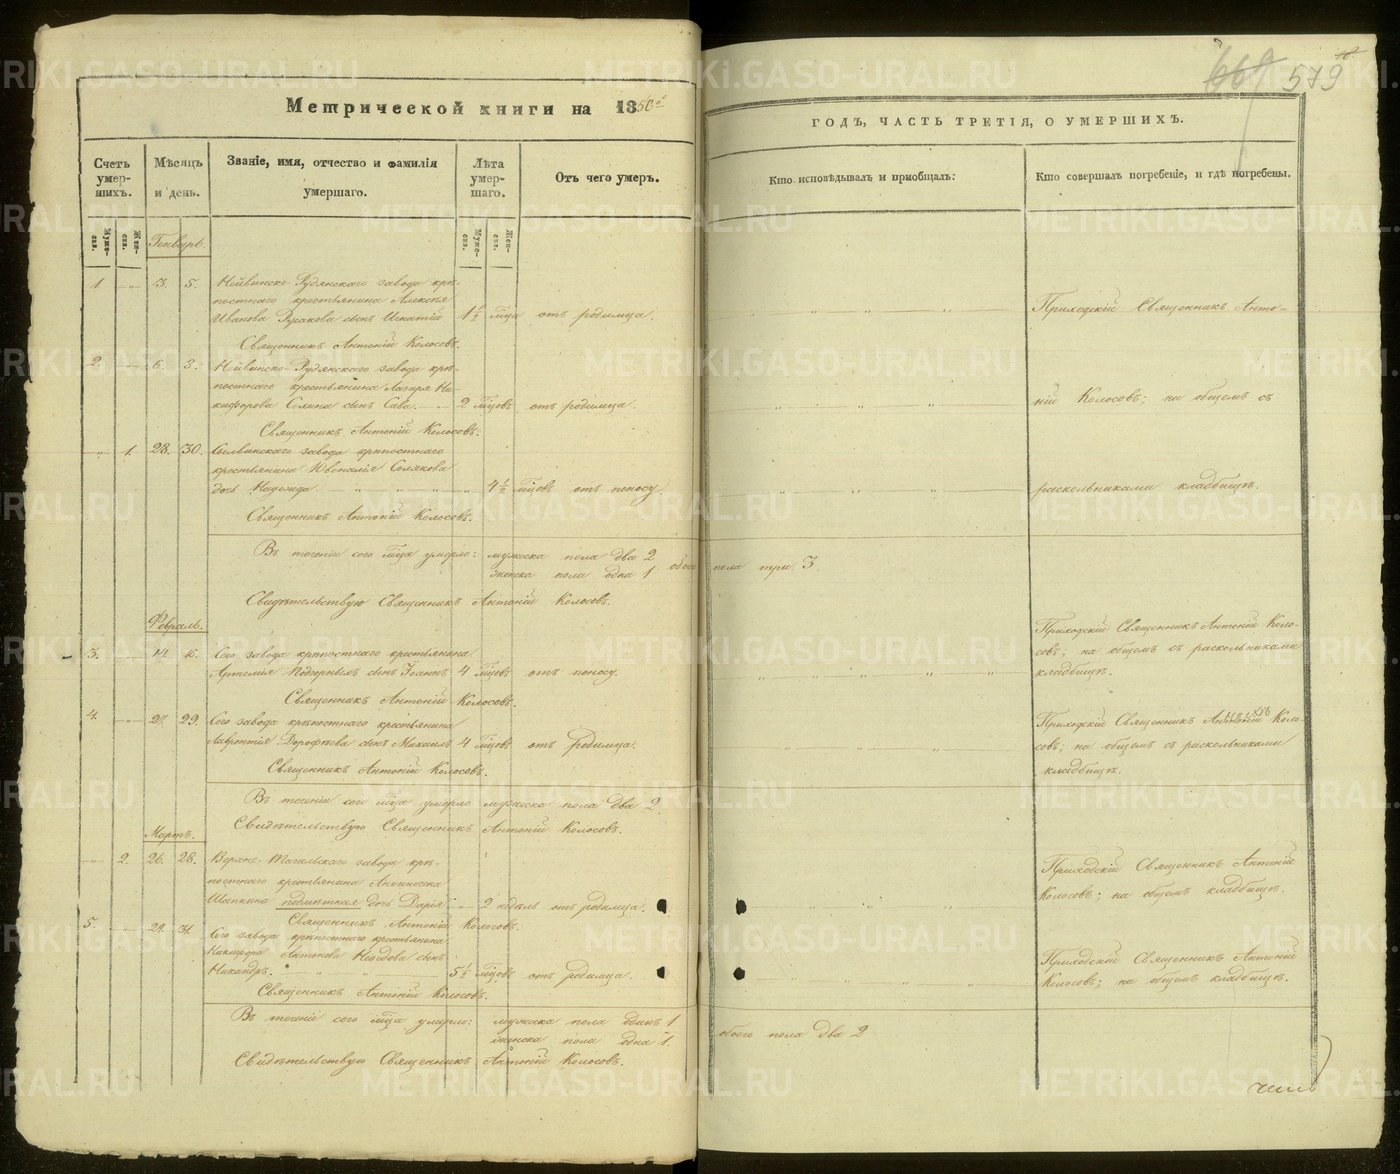 Метрической книги на 1850й
Счетъ умер-шихъ.
Мѣсяцъ и день.
Званіе, имя, отчество и фамилія умершаго.
Лѣта умер-шаго.
Отъ чего умеръ.
Муже-ска.
Жен-ска.
Муже-ска.
Жен-ска.
Генварь.
1 „ 3. 5. Нейвинско-Рудянскаго завода крѣ-
постнаго крестьянина Алексѣя
Иванова сынъ Игнатій 1½ мѣсяца отъ родимца.
Священникъ Антоній Колосовъ.
2. „ 6. 8. Нейвинско-Рудянскаго завода крѣ-
постнаго крестьянина Лазаря Ни-
кифорова сынъ Сава. 2 мѣсяцовъ отъ родимца.
Священникъ Антоній Колосовъ.
„ 1. 28. 30. Сылвинскаго завода крѣпостнаго
крестьянина Ювеналія Солякова
дочь Надежда. 4½ мѣсяцовъ отъ поносу.
Священникъ Антоній Колосовъ.
Въ теченіи сего мѣсяца умерло: мужеска пола два 2
женска пола одна 1
обоего
Свидѣтельствую Священникъ Антоній Колосовъ.
Февраль.
3. „ 14. 16. Сего завода крѣпостнаго крестьянина
Артемія Подгорныхъ сынъ Іоаннъ 4 мѣсяцовъ отъ поносу.
Священникъ Антоній Колосовъ.
4. „ 27. 29. Сего завода крѣпостнаго крестьянина
Лаврентія Дорофѣева сынъ Михаилъ 4 мѣсяцовъ отъ родимца.
Священникъ Антоній Колосовъ.
Въ теченіи сего мѣсяца умерло мужеска пола два 2.
Свидѣтельствую Священникъ Антоній Колосовъ.
Мартъ.
„ 2. 26. 28. Верхне-Тагильскаго завода крѣ-
постнаго крестьянина
Шапкина дочь Дарія 2 недѣль отъ родимца.
Священникъ Антоній Колосовъ.
5. „ 29. 31. Сего завода крѣпостнаго крестьянина
Никифора Антонова сынъ
Никандръ. 5½ мѣсяцовъ отъ родимца.
Священникъ Антоній Колосовъ.
Въ теченіе сего мѣсяца умерло: мужеска пола одинъ 1
женска пола одна 1.
Свидѣтельствую Священникъ Антоній Колосовъ.
669 579
ГОДЪ, ЧАСТЬ ТРЕТІЯ, О УМЕРШИХЪ.
Кто исповѣдывалъ и пріобщалъ:
Кто совершалъ погребеніе, и гдѣ погребены.
Приходскій Священникъ Анто-
ній Колосовъ; на общемъ съ
раскольниками кладбищѣ.
пола три. 3.
Приходскій Священникъ Антоній Коло-
совъ; на общемъ съ раскольниками
кладбищѣ.
Приходскій Священникъ Антоній Коло-
совъ; на общемъ съ раскольниками
кладбищѣ.
Приходскій Священникъ Антоній
Колосовъ; на общемъ кладбищѣ.
Приходскій Священникъ Антоній
Колосовъ; на общемъ кладбищѣ.
обоего пола два 2
METRIKI.GASO-URAL.RU